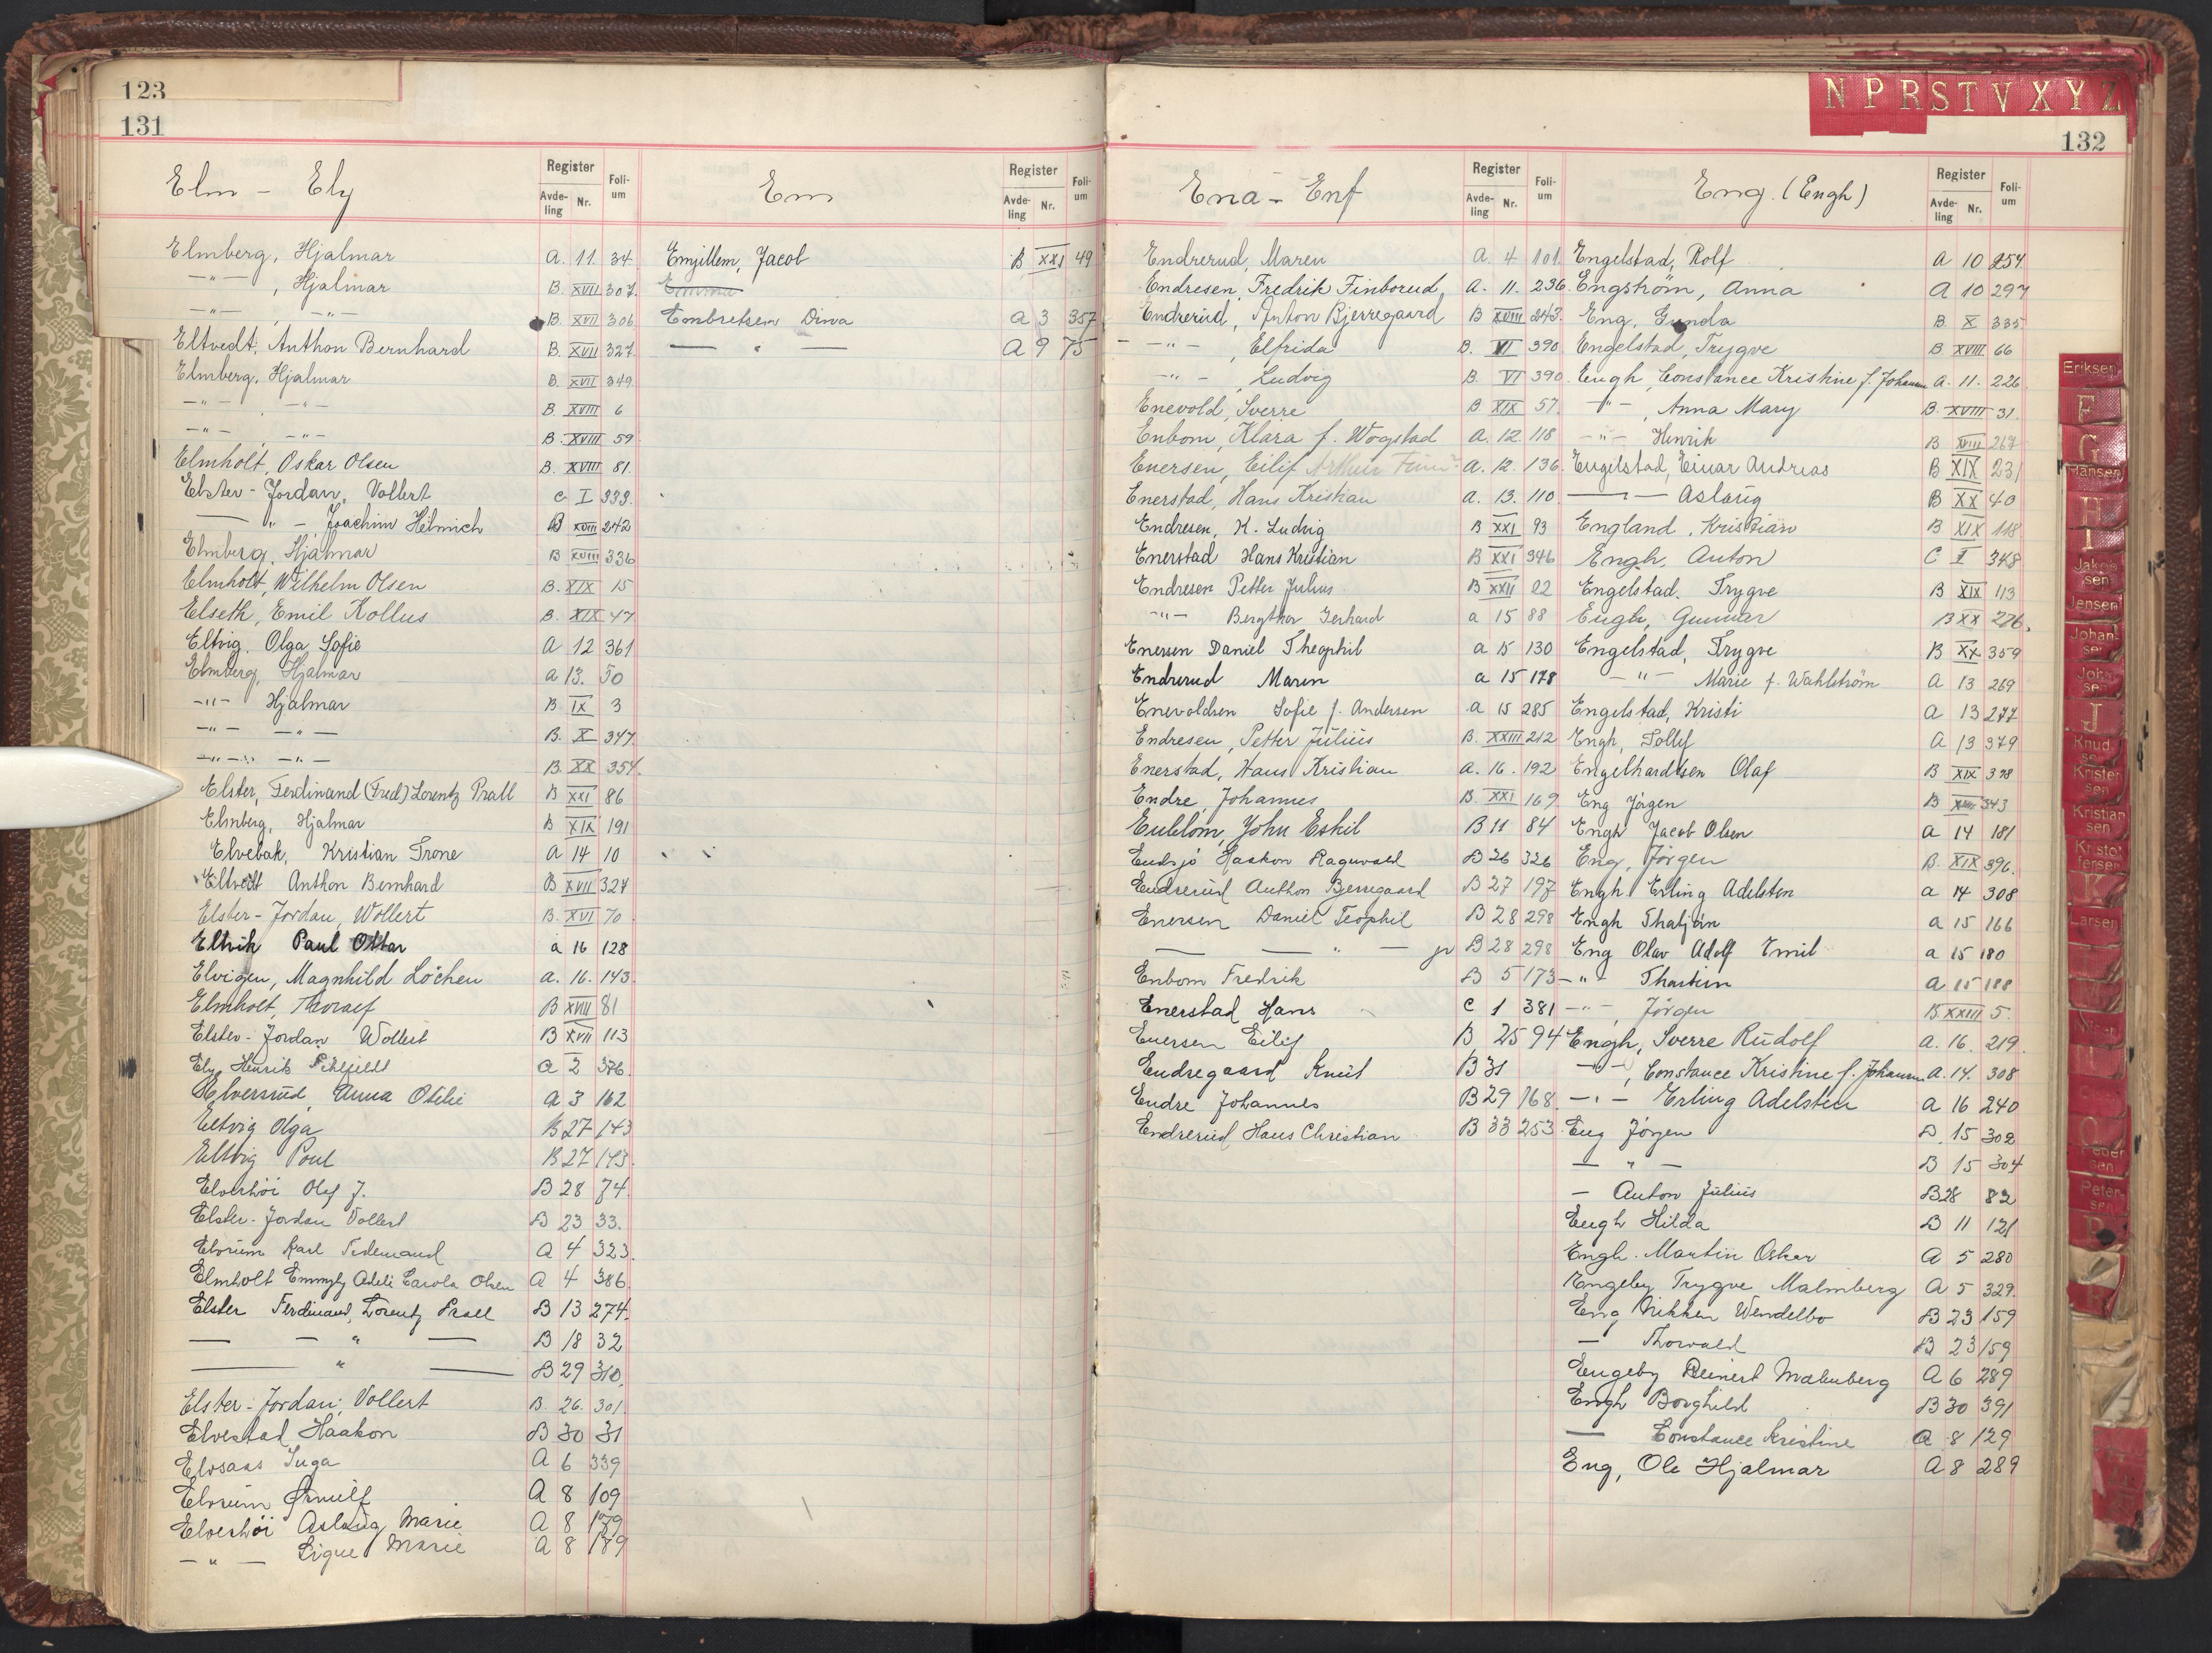 123
131
Elm - Ely
Register
Avde-ling Nr.
Foli-um
Elmberg, Hjalmar A. 11. 34
-"- , Hjalmar B. XVII 307.
-"- -"- B. XVII 306
Eltvedt, Anthon Bernhard B. XVII 327.
Elmberg, Hjalmar B. XVII 349
-"- -"- B. XVIII 6
-"- -"- B. XVIII 59
Elmholt, Oskar Olsen B. XVIII 81.
Elster-Jordan, Vollert C I 333.
-"- Joachim Hilmich B XVIII 242
Elmberg, Hjalmar B XVIII 336
Elmholt, Wilhelm Olsen B. XIX 15
Elseth, Emil Kollus B. XIX 47
Eltvig, Olga Sofie A 12 361
Elmberg, Hjalmar a 13. 50
-"- Hjalmar B IX 3
-"- -"- B. X 347.
-"- -"- B. XX 354.
Elster, Ferdinand (Fred) Lorentz Prall B XXI 86
Elmberg, Hjalmar B XIX 191
Elvebak, Kristian Trone A 14 10
Eltvedt Anthon Bernhard B XVII 327
Elster-Jordan, Wollert B. XVI 70
Eltvik Paul Ottar a 16 128
Elvigen, Magnhild Löchen a. 16. 143.
Elmholt, Thoralf B XVIII 81
Elster-Jordan Wollert B XVII 113
Ely, Henrik A 2 376.
Elversrud, Anna Otilie A 3 162
Eltvig Olga B 27 143
Eltvig Poul B 27 143.
Elverhöi Olaf J. B 28 74.
Elster-Jordan Vollert B 23 33.
Elvrum Karl Tidemand A 4 323.
Elmholt Emmyly Adele Carola Olsen A 4 386.
Elster Ferdinand, Lorentz Prall B 13 274.
— — " — B 18 32
— " — B 29 310.
Elster-Jordan, Vollert B. 26. 301
Elvestad Haakon B 30 31
Elvsaas Inga A 6 339
Elvrum Ørnulf A 8 109
Elverhöi Aslaug Marie A 8 179
-"- Signe Marie A 8 189
Em
Register
Avde-ling Nr.
Foli-um
Emjillem, Jacob B XXI 49
Embretsen Dina A 3 357
— " — A 9 75
Ena - Enf
Register
Avde-ling Nr.
Foli-um
Endrerud, Maren A. 4 101.
Endresen, Fredrik Finborud, A. 11. 236.
Endrerud, Anton Bjerregaard B XVIII 243.
-"- , Elfrida B. VI 390
-"- , Ludvig B. VI 390.
Enevold, Sverre B XIX 57.
Enbom, Klara f. Wogstad A. 12. 118
Enersen, Eilif Arthur A. 12. 136.
Enerstad, Hans Kristian A. 13. 110
Endresen, K. Ludvig B XXI 93
Enerstad Hans Kristian B XXI 346
Endresen Petter Julius B XXII 22
-"- Bergthor Gerhard a 15 88
Enersen Daniel Theophil a 15 130
Endrerud Maren a 15 178
Enevoldsen Sofie f. Andersen a 15 285
Endresen, Petter Julius B. XXIII 212
Enerstad, Hans Kristian a. 16. 192
Endre, Johannes B. XXI 169.
Enblom, John Eskil B 11 84
Endsjö Haakon Ragnvald B 26 326
Endrerud Anthon Bjerregaard B 27 197
Enersen Daniel Teophil B 28 298
— — " — jr B 28 298
Enbom Fredrik B 5 173
Enerstad Hans C 1 381
Enersen Eilif B 25 94
Endregaard Knut B 31
Endre Johannes B 29 168.
Endrerud Hans Christian B 33 253.
N P R S T V X Y Z
132
Eng. (Engh)
Register
Avde-ling Nr.
Foli-um
Engelstad, Rolf A 10 254.
Engström, Anna A 10 297
Eng, Gunda B. X 335
Engelstad, Trygve B XVIII 66
Engh, Constance Kristine f. Johansen A. 11. 226
-"- , Anna Mary B. XVIII 31.
-"- Henrik B XVIII 267
Engelstad, Einar Andreas B XIX 231
-"- Aslaug B XX 40
England, Kristian B XIX 118
Engh, Anton C I 348
Engelstad, Trygve B XIX 113
Engh, Gunnar B XX 226.
Engelstad, Trygve B XX 359
-"- Marie f. Wahlström A 13 269
Engelstad, Kristi A 13 277
Engh, Tollef A 13 379
Engelhardtsen Olaf B XIX 378
Eng Jörgen B XVIII 343
Engh Jacob Olsen A 14 181
Eng, Jörgen B. XIX 396.
Engh Erling Adelsten a 14 308
Engh Thorbjörn a 15 166
Eng Olav Adolf Emil a 15 180
-"- Thorstein a 15 188
-"- , Jörgen B. XXIII 5.
Engh, Sverre Rudolf a. 16. 219.
-"- , Constance Kristine f. Johansen a. 14. 308
-"- Erling Adelsten a 16 240
Eng Jörgen B. 15 302
— " — B 15 304
— Anton Julius B 28 82
Engh Hilda B 11 121
Engh. Martin Oskar A 5 280
Engeby Trygve Malmberg A 5 329.
Eng Nikken Wendelbo B 23 159
— Thorvald B 23 159
Engeby Reinert Malmberg A 6 289
Engh Borghild B 30 391
— Constance Kristine A 8 129
Eng, Ole Hjalmar A 8 289
Eriksen
F
G
Hansen
H
I
Jakobsen
Jensen
Johansen
J
Knudsen
Kristensen
Kristiansen
Kristoffersen
K
Larsen
O
Pedersen
Petersen
P